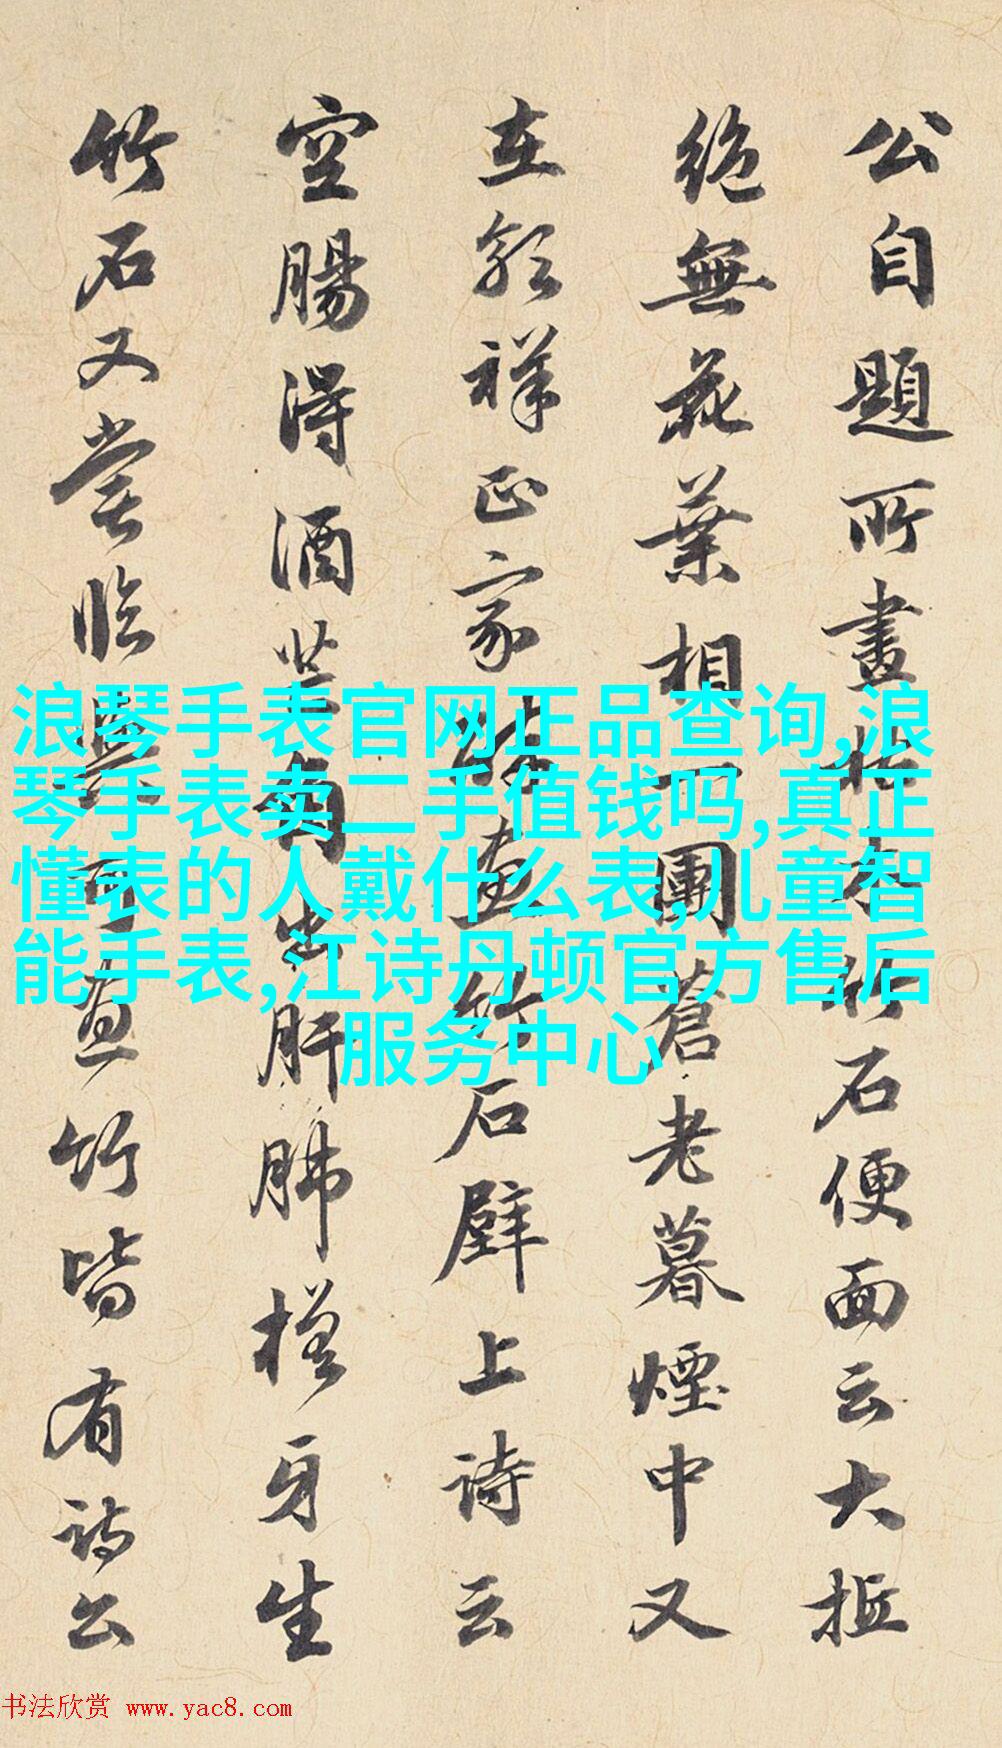 公自題所畫枯木竹石便面云大抵
絶無花葉相一團蒼老暮煙中又
在郭祥正家
畫竹石壁上詩云
空腸得酒芒角出肝肺槎牙生
竹石又嘗臨與可畫竹皆有詩公
浪琴手表官网正品查询,浪
琴手表卖二手值钱吗,真正
懂表的人戴什么表,儿童智
能手表,江诗丹顿官方售后
服务中心
书法欣赏 www.yac8.com